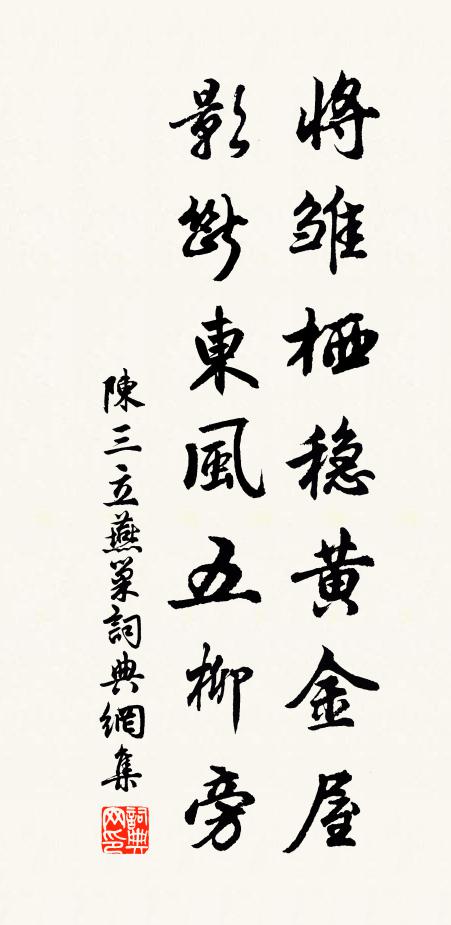 將雛栖稳黄金屋
影斷東風五柳旁
陳三立燕巢詞典網集
詞典网印